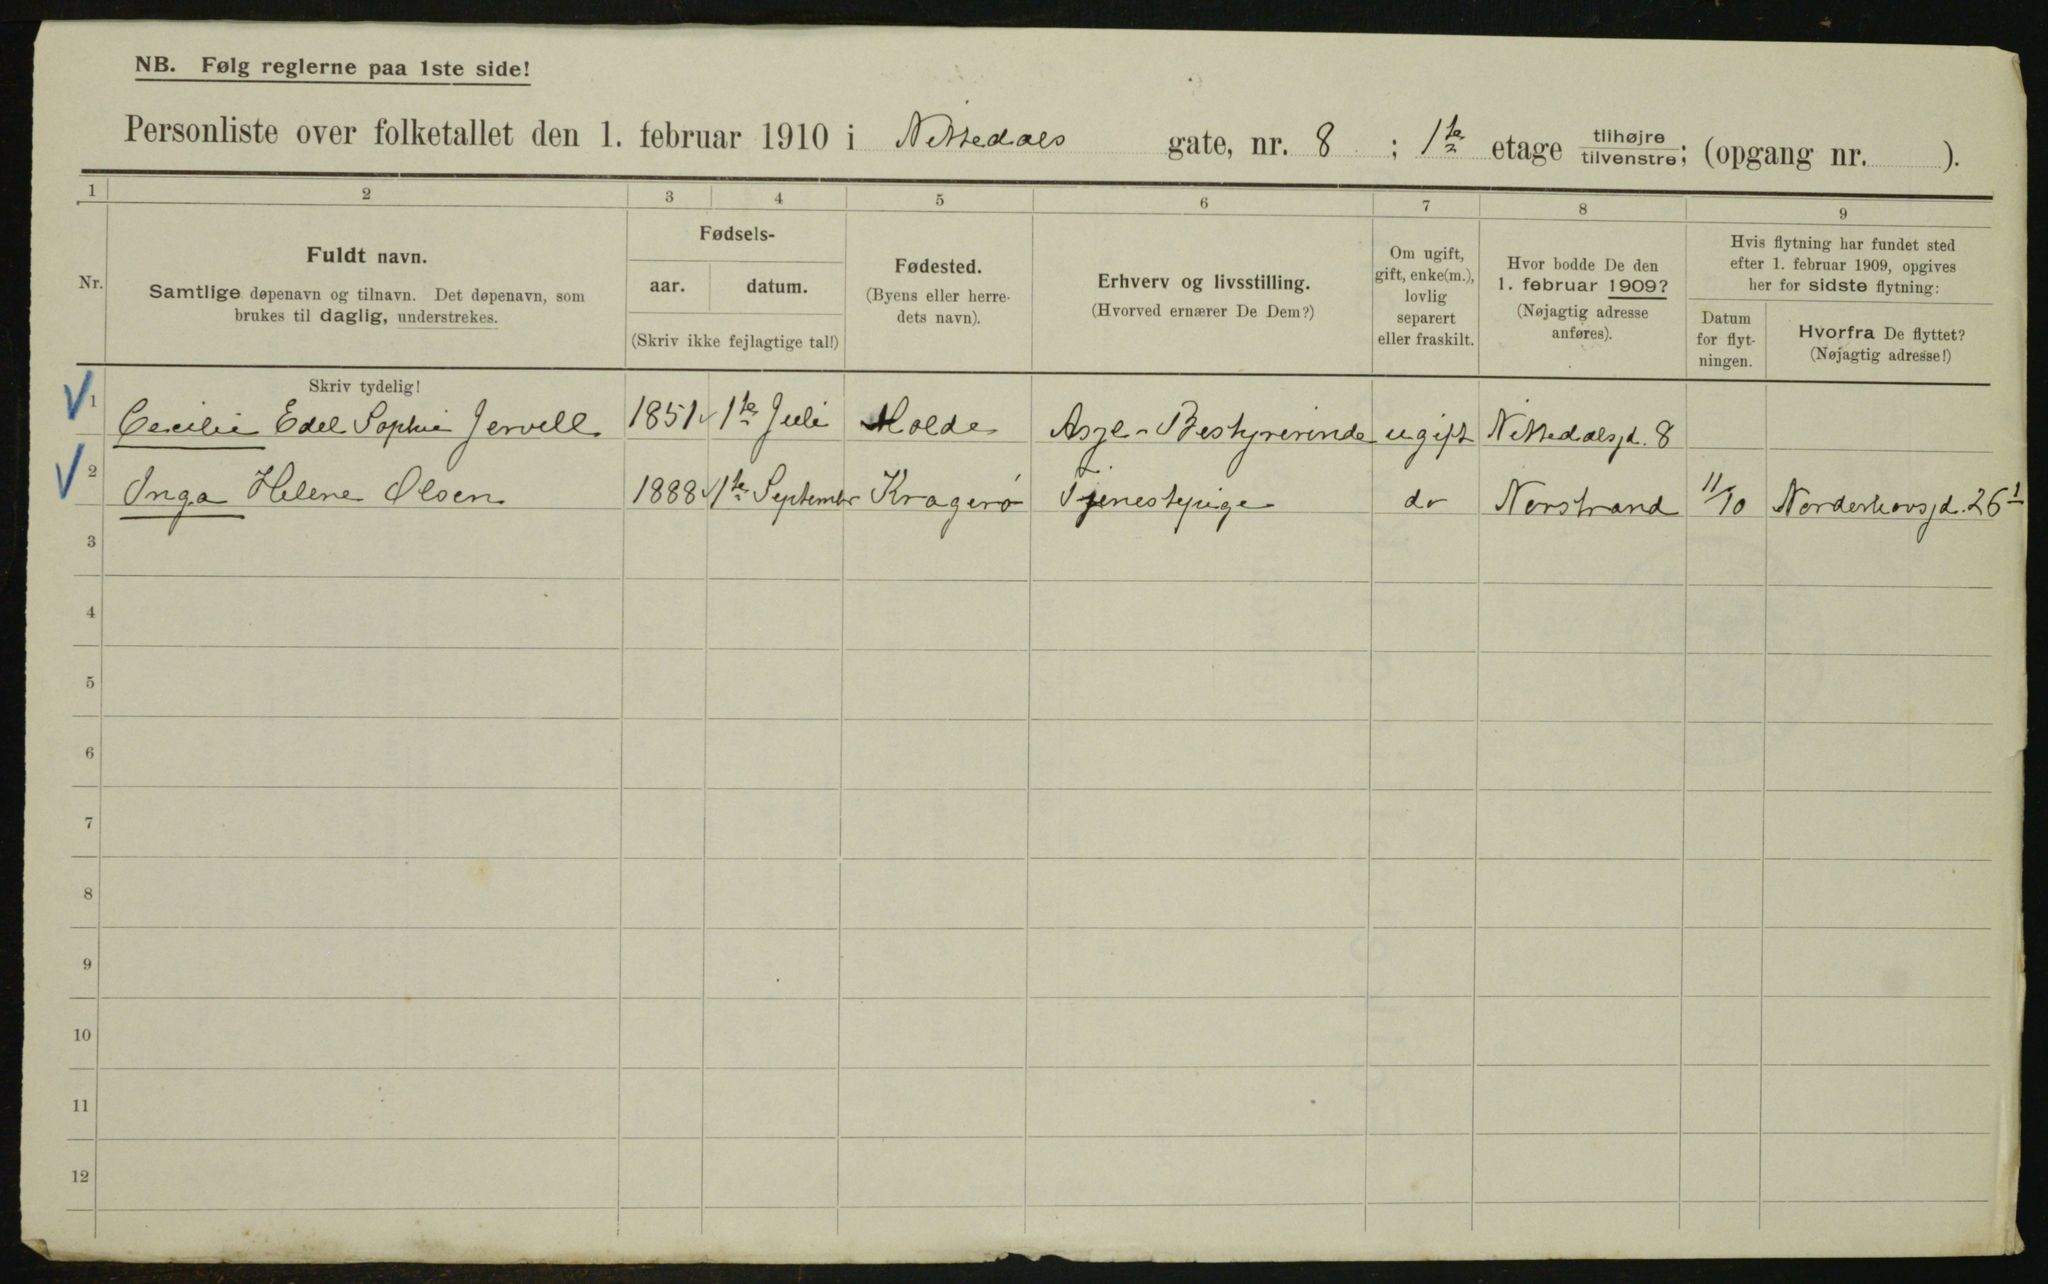 NB. Følg reglerne paa 1ste side!
Personliste over folketallet den 1. februar 1910 i Nittedals gate, nr. 8 ; 1ste etage tilhøjre tilvenstre; (opgang nr. ).
1 2 3 4 5 6 7 8 9
Nr.
Fuldt navn.
Samtlige døpenavn og tilnavn. Det døpenavn, som
brukes til daglig, understrekes.
Fødsels-
aar. datum.
(Skriv ikke fejlagtige tal!)
Fødested.
(Byens eller herre-
dets navn).
Erhverv og livsstilling.
(Hvorved ernærer De Dem?)
Om ugift,
gift, enke(m.),
lovlig
separert
eller fraskilt.
Hvor bodde De den
1. februar 1909?
(Nøjagtig adresse
anføres).
Hvis flytning har fundet sted
efter 1. februar 1909, opgives
her for sidste flytning:
Datum
for flyt-
ningen.
Hvorfra De flyttet?
(Nøjagtig adresse!)
Skriv tydelig!
1 Cecilie Edel Sophie Jervell 1851 1te Juli Molde Asyl-Bestyrerinde ugift Nittedalsgd. 8
2 Inga Helene Olsen 1888 1te September Kragerø Tjenestepige do Norstrand 11/10 Norderhovsgd. 26 1
3
4
5
6
7
8
9
10
11
12